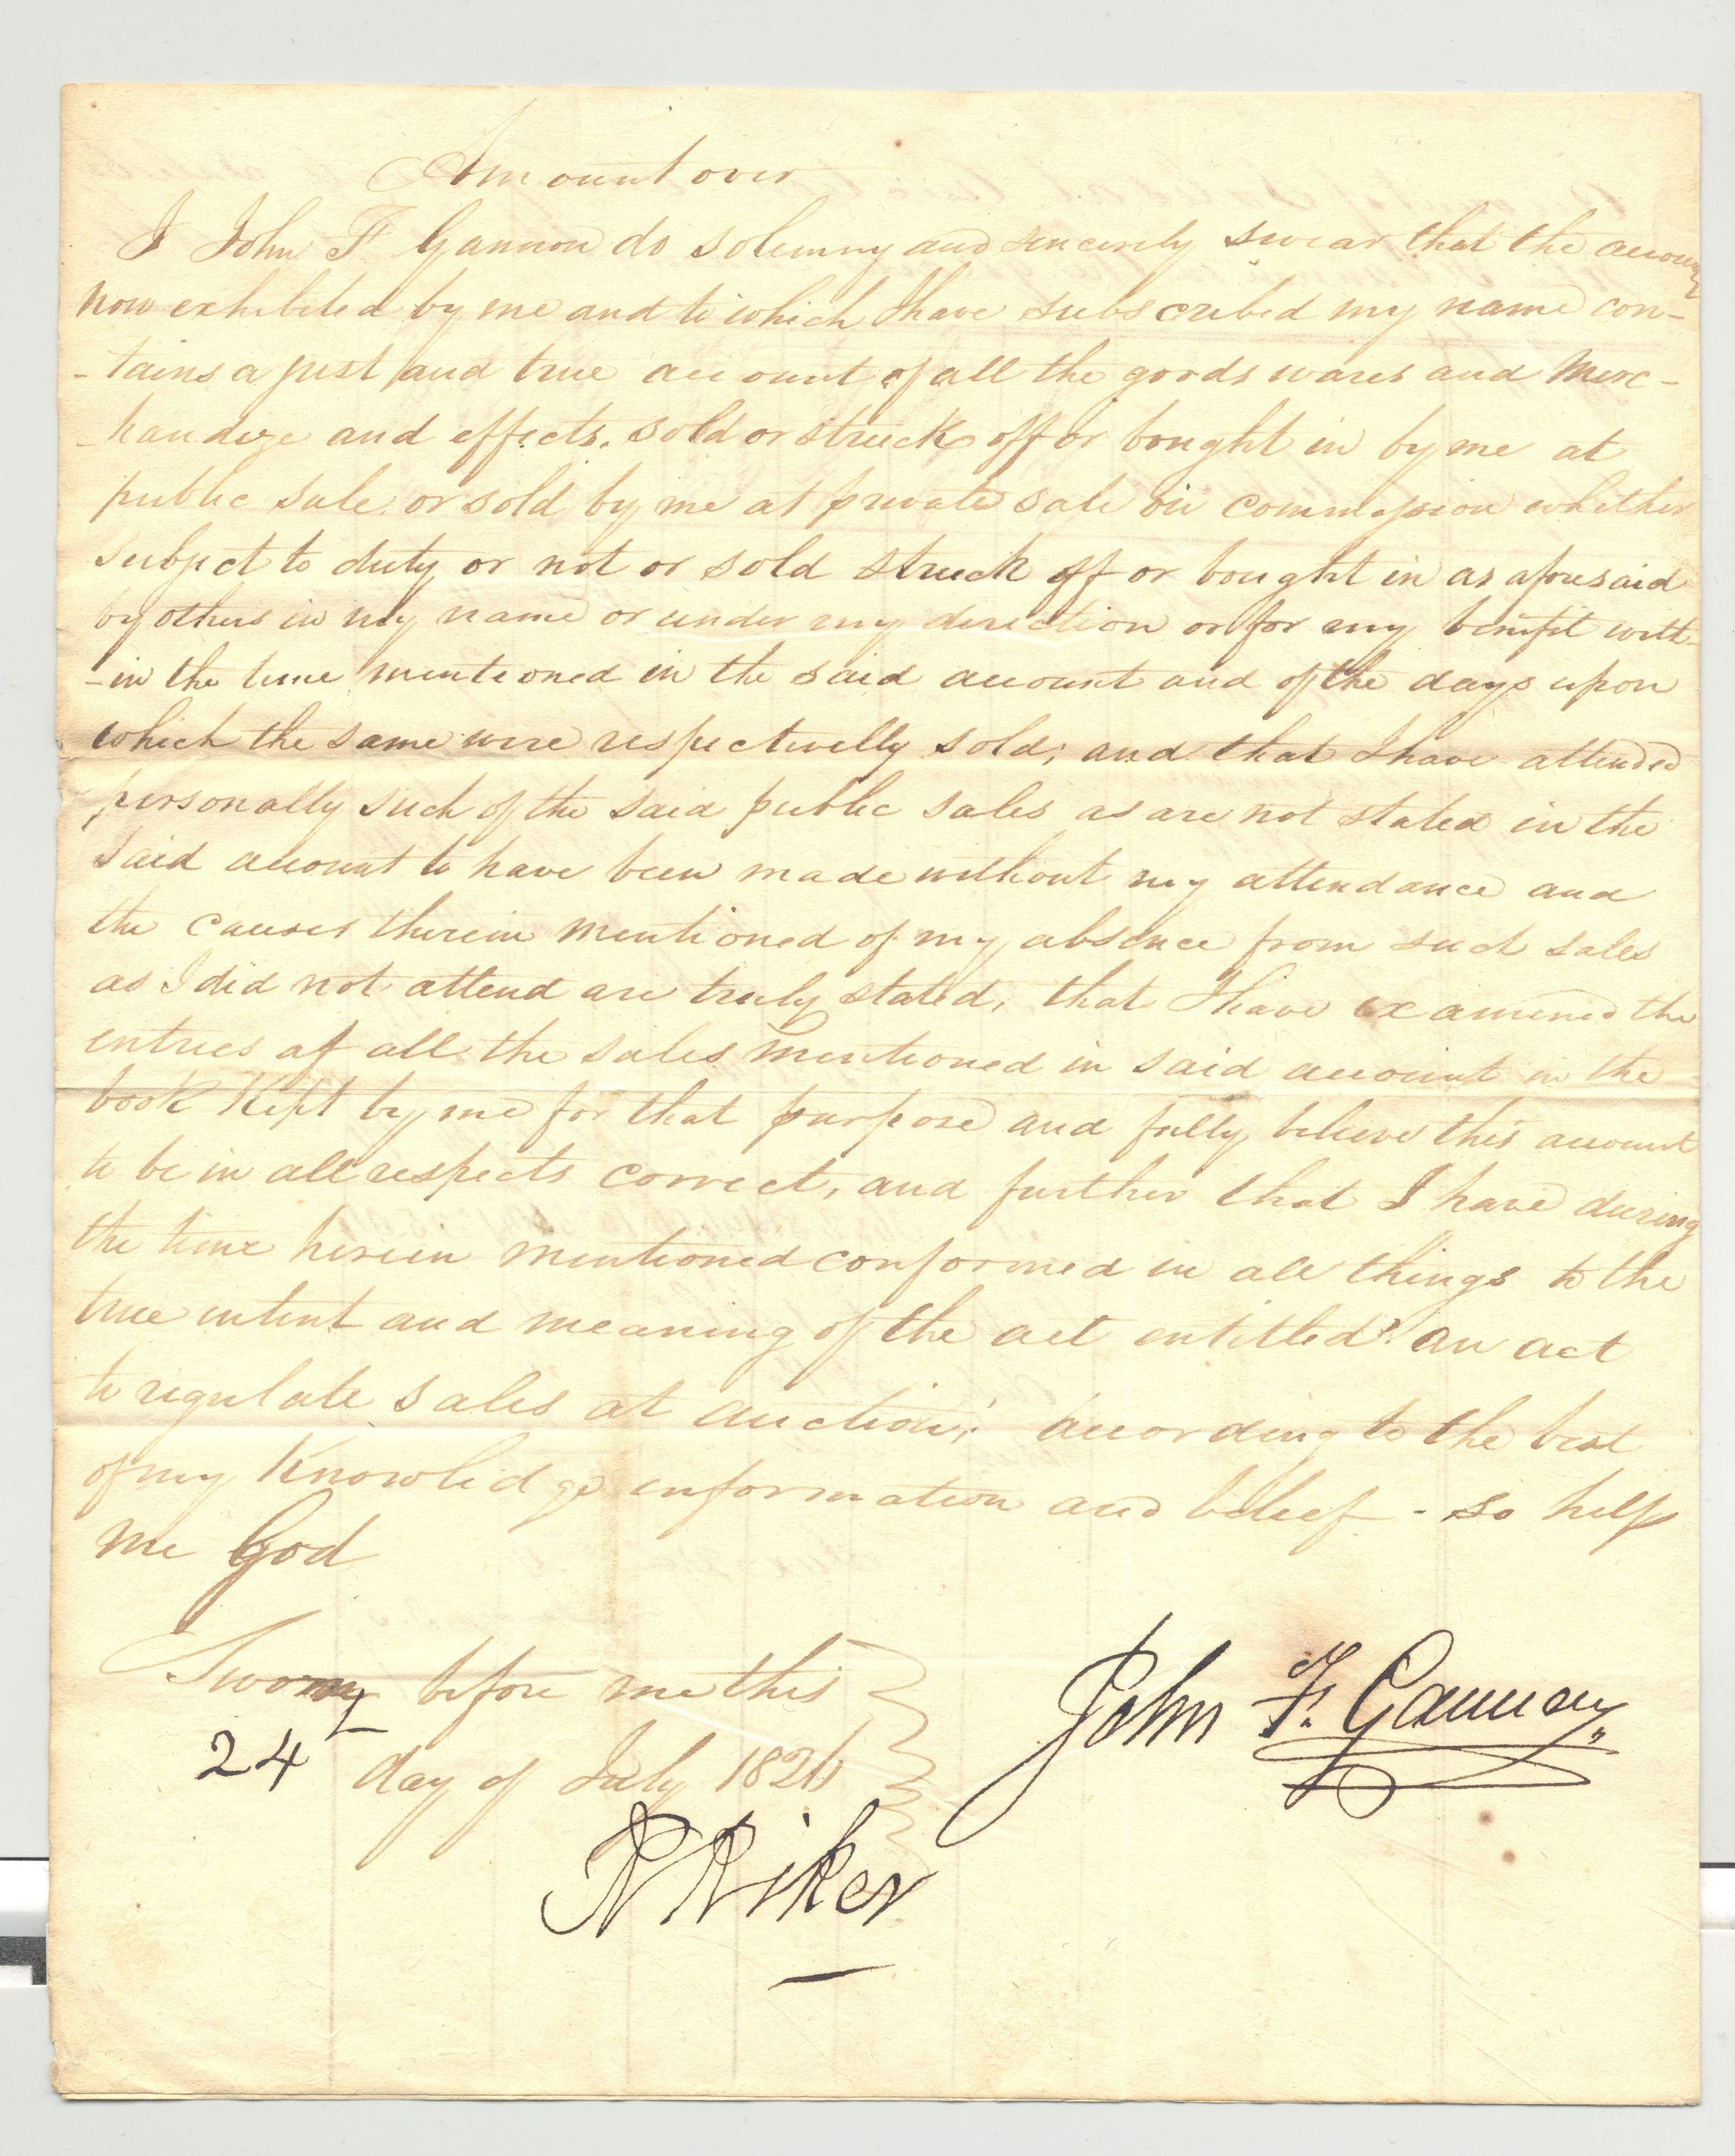 Amount over
I John F Gannon do solemny and sincerely swear that the account
now exhibited by me and to which I have subscribed my name con-
-tains a just and true account of all the goods wares and Merc-
-handize and effects. sold or struck off or bought in by me at
public sale or sold by me at private sale on commission whether
subject to duty or not or sold struck off or bought in as aforesaid
by others in my name or under my direction or for my benifit with-
-in the time mentioned in the said account and of the days upon
which the same were respectivelly sold; and that I have attended
personally such of the said public sales as are not stated in the
said account to have been made without my attendance and
the causes therein mentioned of my absence from such sales
as I did not attend are truly stated, that I have examined the
entries of all the sales mentioned in said account in the
book Kept by me for that purpose and fully believe this account
to be in all respects correct, and further that I have during
the time herein mentioned conformed in all things to the
true intent and meaning of the act entitled "an act
to regulate sales at auction," according to the best
of my Knowledge information and beleef - so help
me God
Sworn before me this
24 day of July 1826
John F. Gannon
R Riker